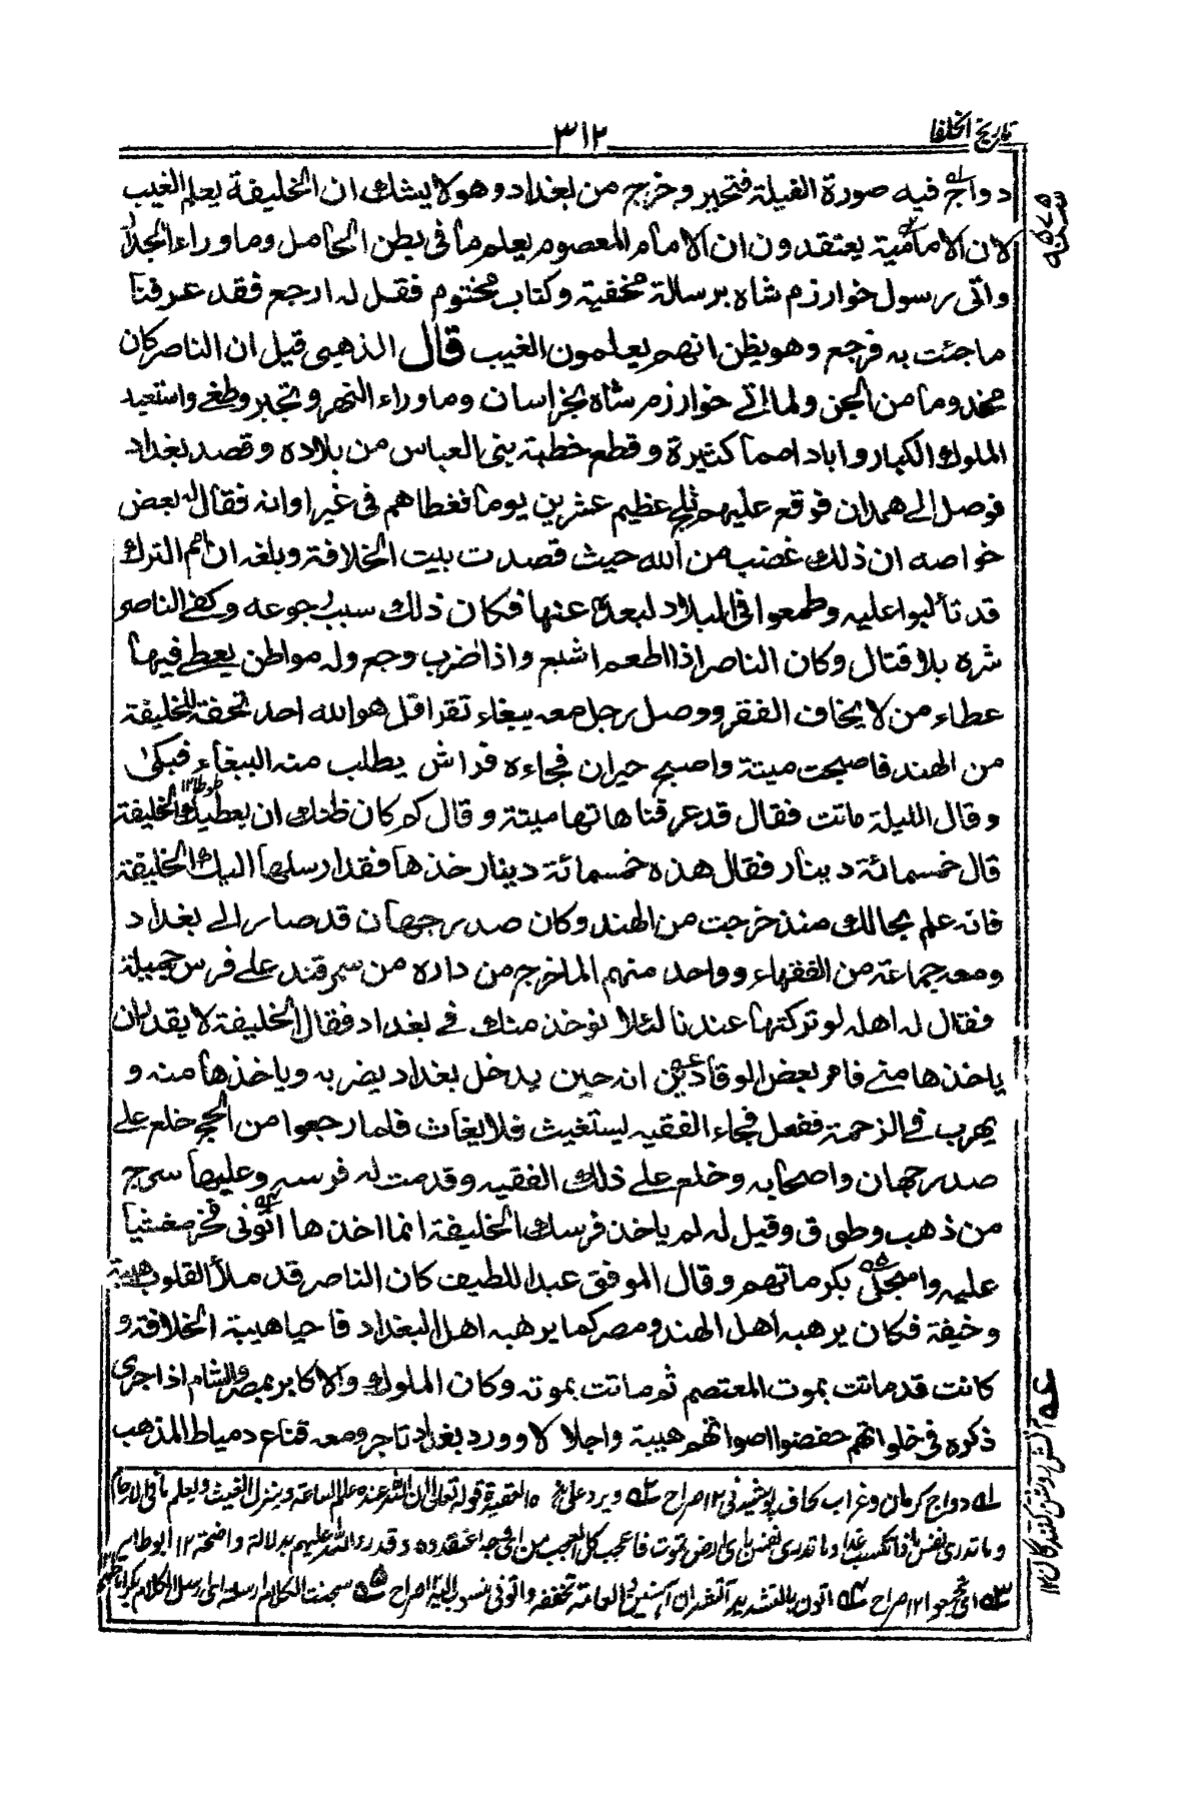 تاريخ الخلفا
٣١٢
دواج فيه صورة الفيلة فتحير وخرج من بغداد وهو لا يشك ان الخليفة يعلم الغيب
لان الامامية يعتقدون ان الامام المعصوم يعلم ما فى بطن الحامل وما وراء الجدار
واتى رسول خوارزم شاه برسالة مخفية وكتاب مختوم فقل له ارجع فقد عرفنا
ما جئت به فرجع وهو يظن انهم يعلمون الغيب قال الذهبى قيل ان الناصر كان
مخدوما من الجن ولما اتى خوارزم شاه بخراسان وما وراء النهر وتجبر وطغى واستعبد
الملوك الكبار واباد امما كثيرة وقطع خطبة بنى العباس من بلاده وقصد بغداد
فوصل الى همدان فوقع عليهم ثلج عظيم عشرين يوما فغطاهم فى غير اوانه فقال له بعض
خواصه ان ذلك غضب من الله حيث قصدت بيت الخلافة وبلغه ان امم الترك
قد تألبوا عليه وطمعوا فى البلاد لبعده عنها فكان ذلك سبب رجوعه وكفى الناصر
شره بلا قتال وكان الناصر اذا اطعم اشبع واذا ضرب وجع وله مواطن يعطى فيها
عطاء من لا يخاف الفقر ووصل رجل معه ببغاء تقرا قل هو الله احد تحفة للخليفة
من الهند فاصبحت ميتة واصبح حيران فجاءه فراش يطلب منه الببغاء فبكى
وقال الليلة ماتت فقال قد عرفنا هاتها ميتة وقال كم كان ظنك ان يعطيك الخليفة
قال خمسمائة دينار فقال هذه خمسمائة دينار خذها فقد ارسلها اليك الخليفة
فانه علم بحالك منذ خرجت من الهند وكان صدر جهان قد صار الى بغداد
ومعه جماعة من الفقهاء وواحد منهم لما خرج من داره من سمرقند على فرس جميلة
فقال له اهله لو تركتها عندنا لئلا تؤخذ منك فى بغداد فقال الخليفة لا يقدر ان
ياخذها منى فامر بعض الوقادين انه حين يدخل بغداد يضربه وياخذها منه و
يهرب فى الزحمة ففعل فجاء الفقيه يستغيث فلا يغاث فلما رجعوا من الحج خلع على
صدر جهان واصحابه وخلع على ذلك الفقيه وقدمت له فرسه وعليها سرج
من ذهب وطوق وقيل له لم ياخذ فرسك الخليفة انما اخذها اتونى فخر مغشيا
عليه واسجل بكرماتهم وقال الموفق عبد اللطيف كان الناصر قد ملأ القلوب هيبة
وخيفة فكان يرهبه اهل الهند ومصر كما يرهبه اهل البغداد فاحيا هيبة الخلافة و
كانت قد ماتت بموت المعتصم ثم ماتت بموته وكان الملوك والاكابر بمصر والشام اذا جرى
ذكره فى خلواتهم خفضوا اصواتهم هيبة واجلالا وورد بغداد تاجر ومعه قناع دمياط المذهب